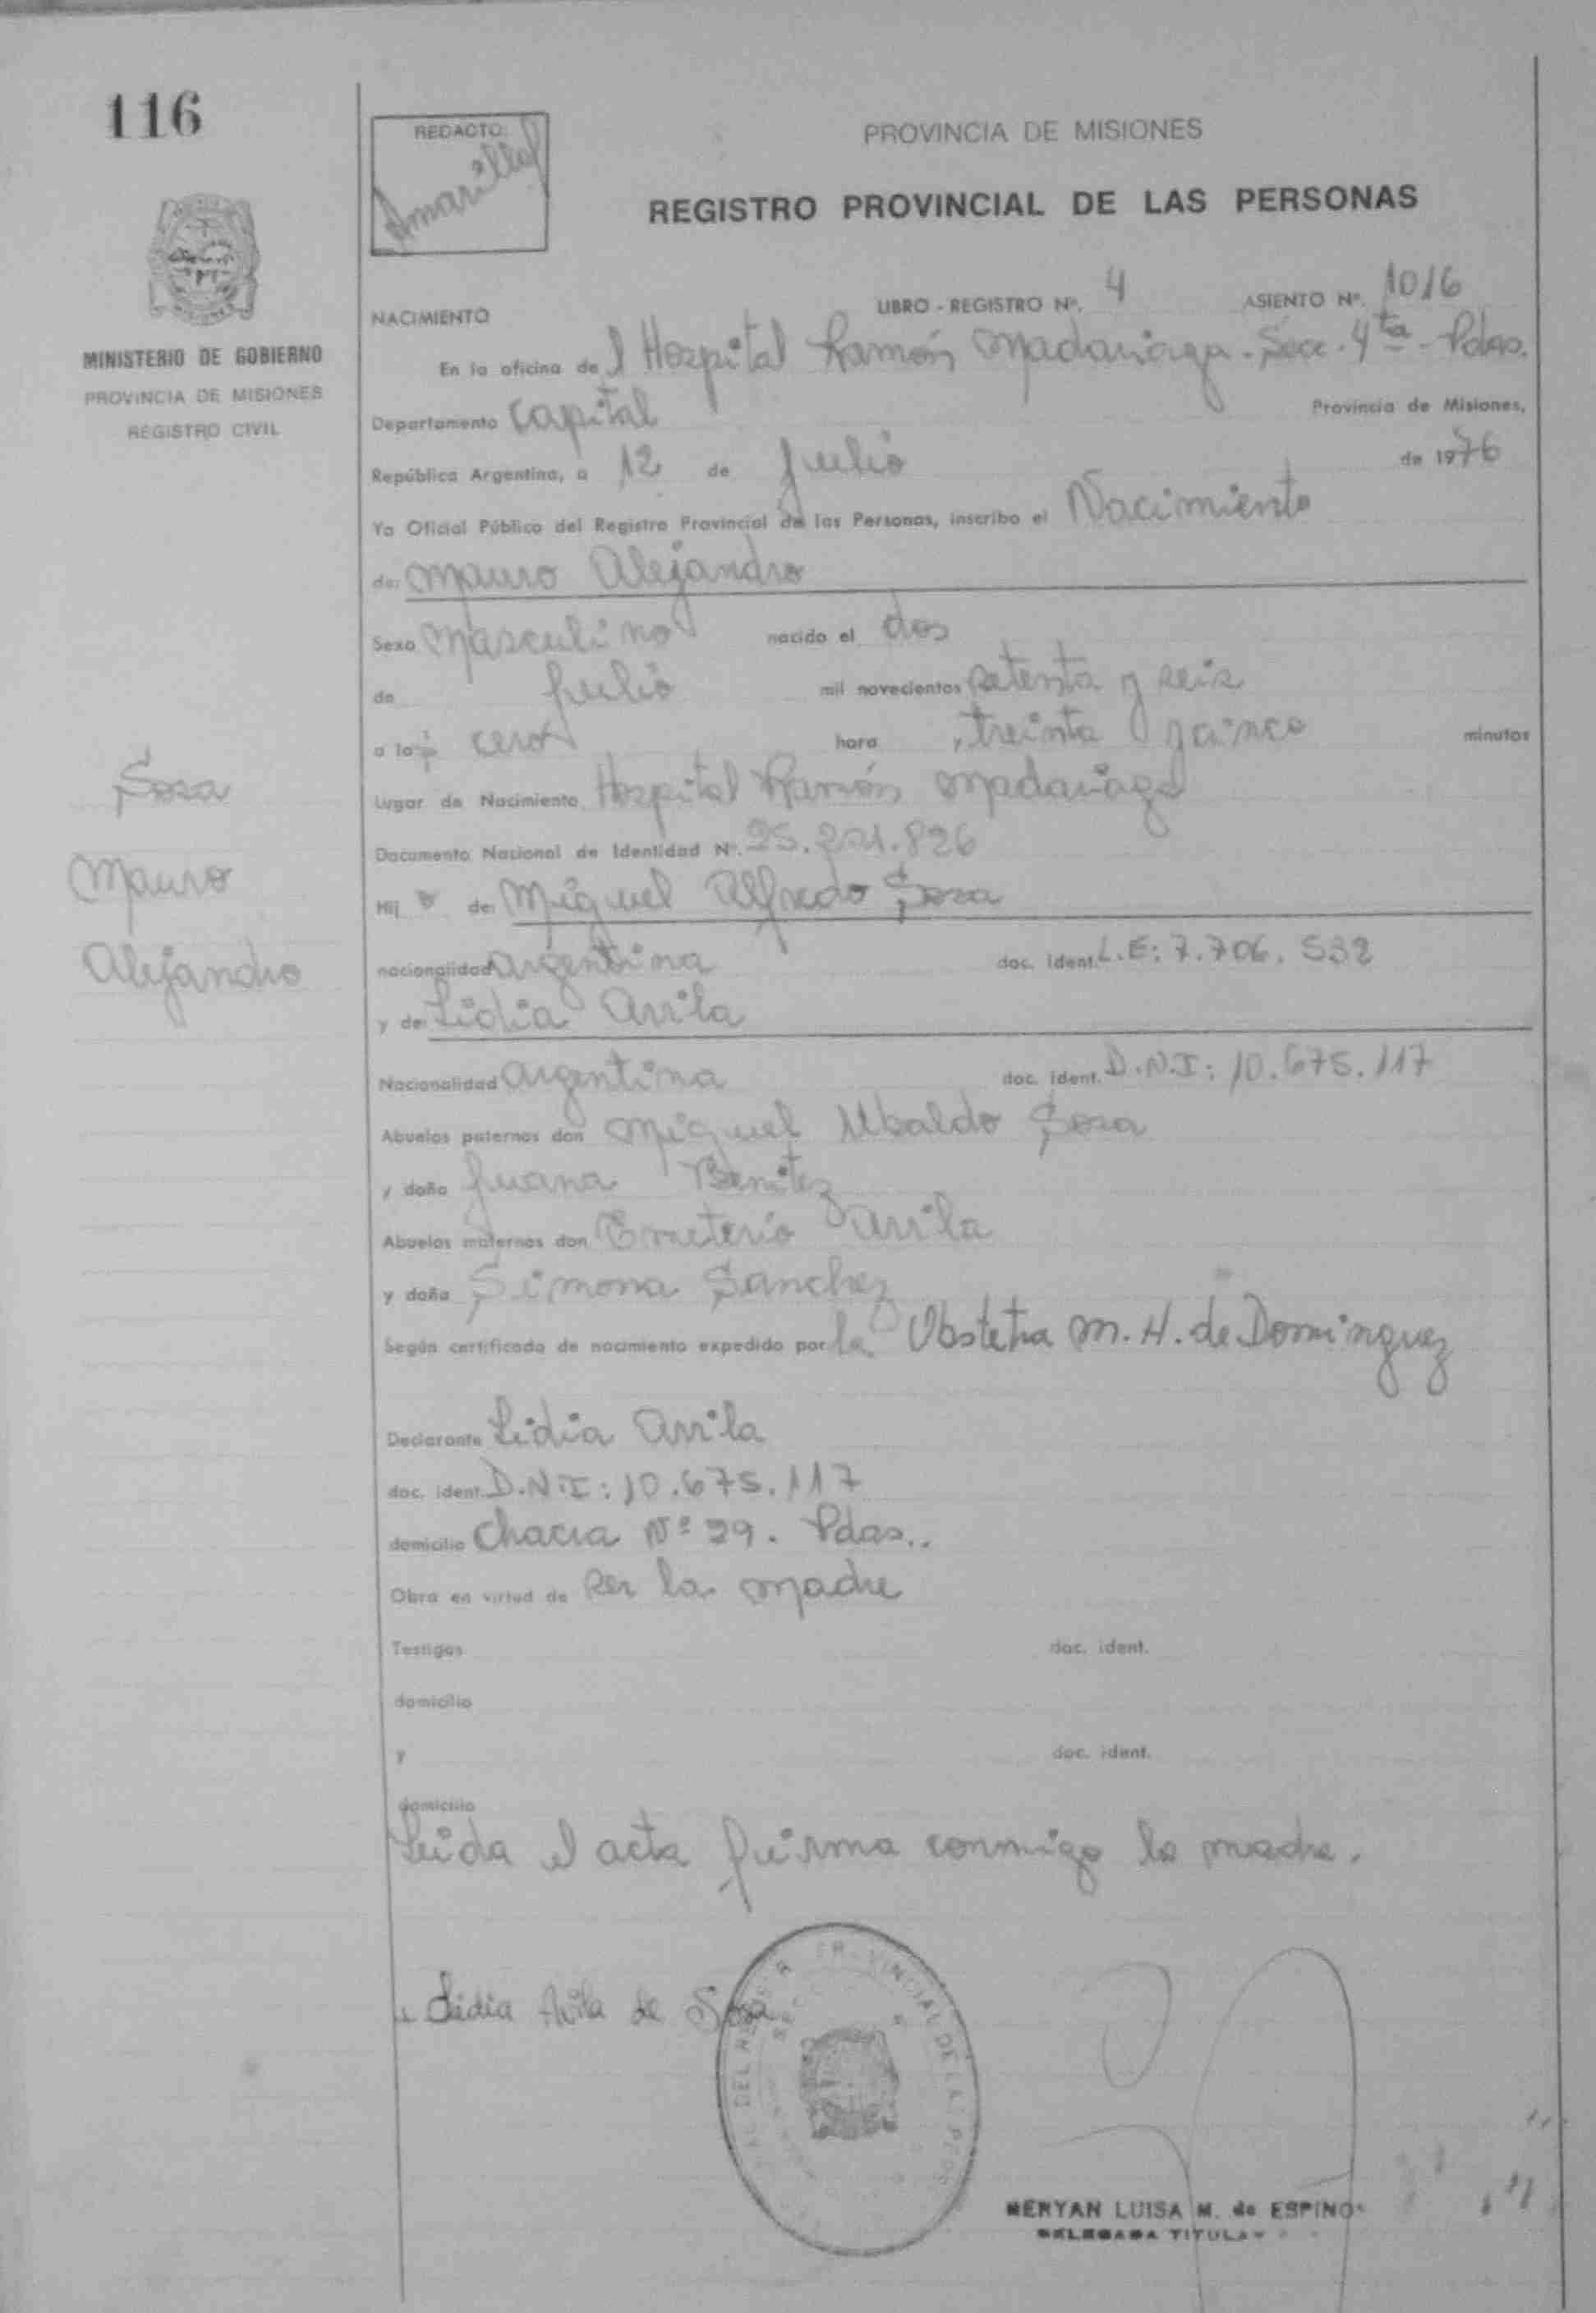 116
REDACTO:
Amarilla
PROVINCIA DE MISIONES
REGISTRO PROVINCIAL DE LAS PERSONAS
MINISTERIO DE GOBIERNO
PROVINCIA DE MISIONES
REGISTRO CIVIL
NACIMIENTO LIBRO - REGISTRO Nº. 4 ASIENTO Nº. 1016
En la oficina del Hospital Ramón Madariaga - Sec. 4ta - Pdas.
Departamento Capital Provincia de Misiones,
República Argentina, a 12 de Julio de 1976
Yo Oficial Público del Registro Provincial de las Personas, inscribo el Nacimiento
de: Mauro Alejandro
Sexo Masculino nacido el dos
de Julio mil novecientos setenta y seis
a la cero hora treinta y cinco minutos
Lugar de Nacimiento Hospital Ramón Madariaga
Documento Nacional de Identidad Nº. 25. .826
Sosa
Mauro
Alejandro
Hij o de: Miguel Alfredo Sosa
nacionalidad argentina doc. ident. L.E: 7.706.532
y de: Lidia Avila
Nacionalidad argentina doc. ident. D.N.I: 10.675.117
Abuelos paternos don Miguel Ubaldo Sosa
y doña Juana Benitez
Abuelos maternos don Emeterio Avila
y doña Simona Sanchez
Según certificado de nacimiento expedido por la Obstetra M. H. de Dominguez
Declarante Lidia Avila
doc. ident. D.N.I: 10.675.117
domicilio Chacra Nº 29. Pdas..
Obra en virtud de ser la madre
Testigos doc. ident.
domicilio
y doc. ident.
domicilio
Leida el acta firma conmigo la madre.
Lidia Avila de Sosa
MERYAN LUISA M. de ESPINO
DELEGADA TITULAR